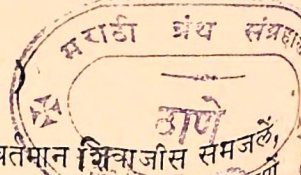 मराठी ग्रंथ संग्रहा
ठाणे
वर्तमान शिवाजीस समजलें,